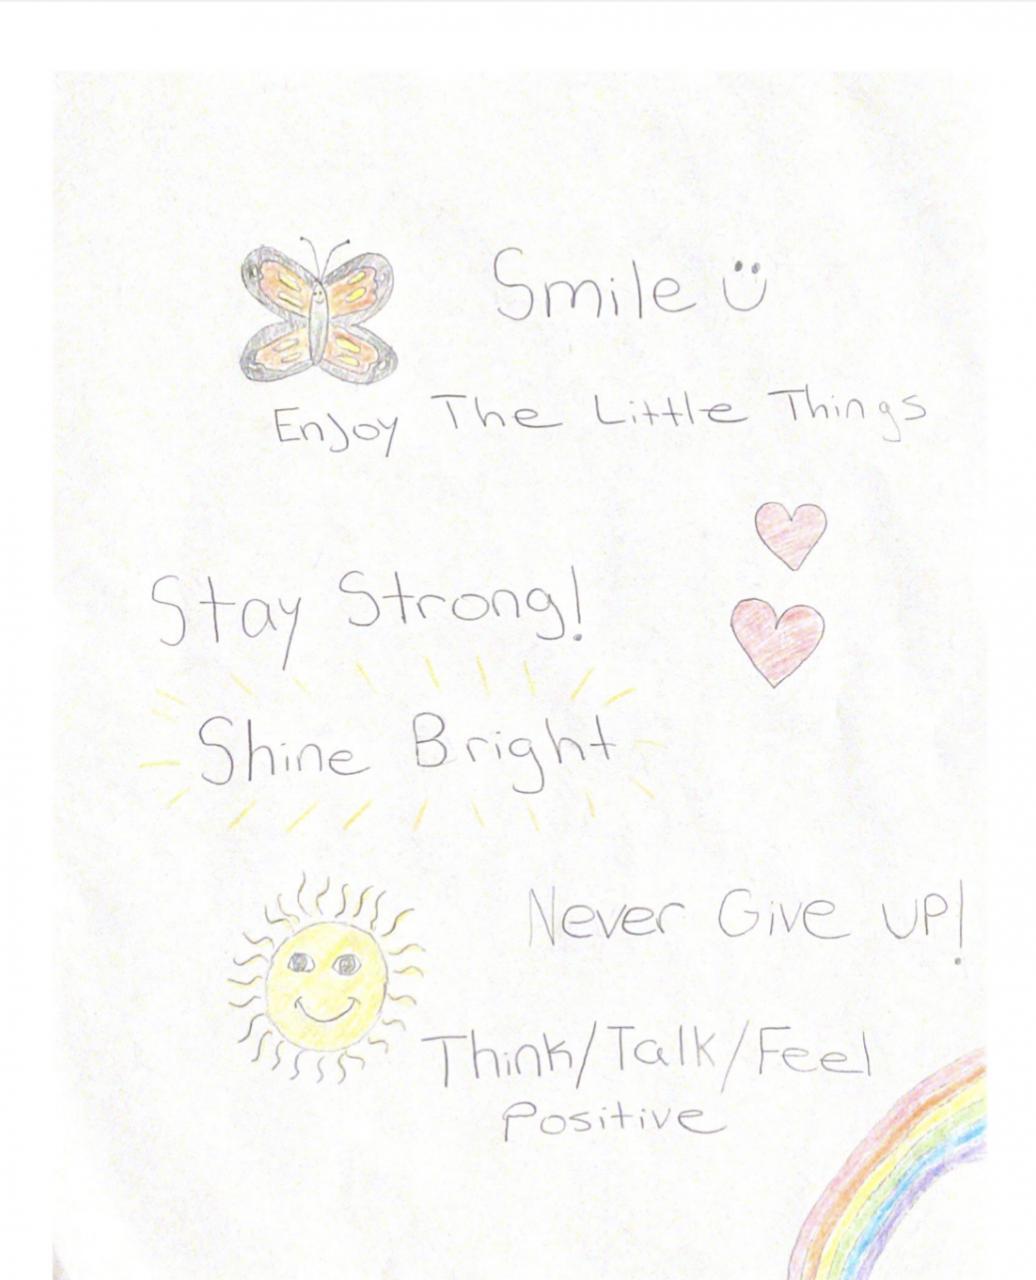 Smile
Enjoy The Little Things
Stay Strong!
Shine Bright
Never Give UP!
Think/Talk/Feel
Positive